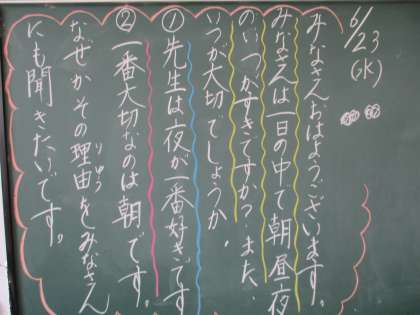 6/23
(水)
みなさんおはようございます。
みなさんは一日の中で朝昼夜
のいつがすきですか?また、
いつが大切でしょうか。
①先生は夜が一番好きです
②一番大切なのは朝です。
なぜかその理由をみなさん
りゆう
にも聞きたいです。